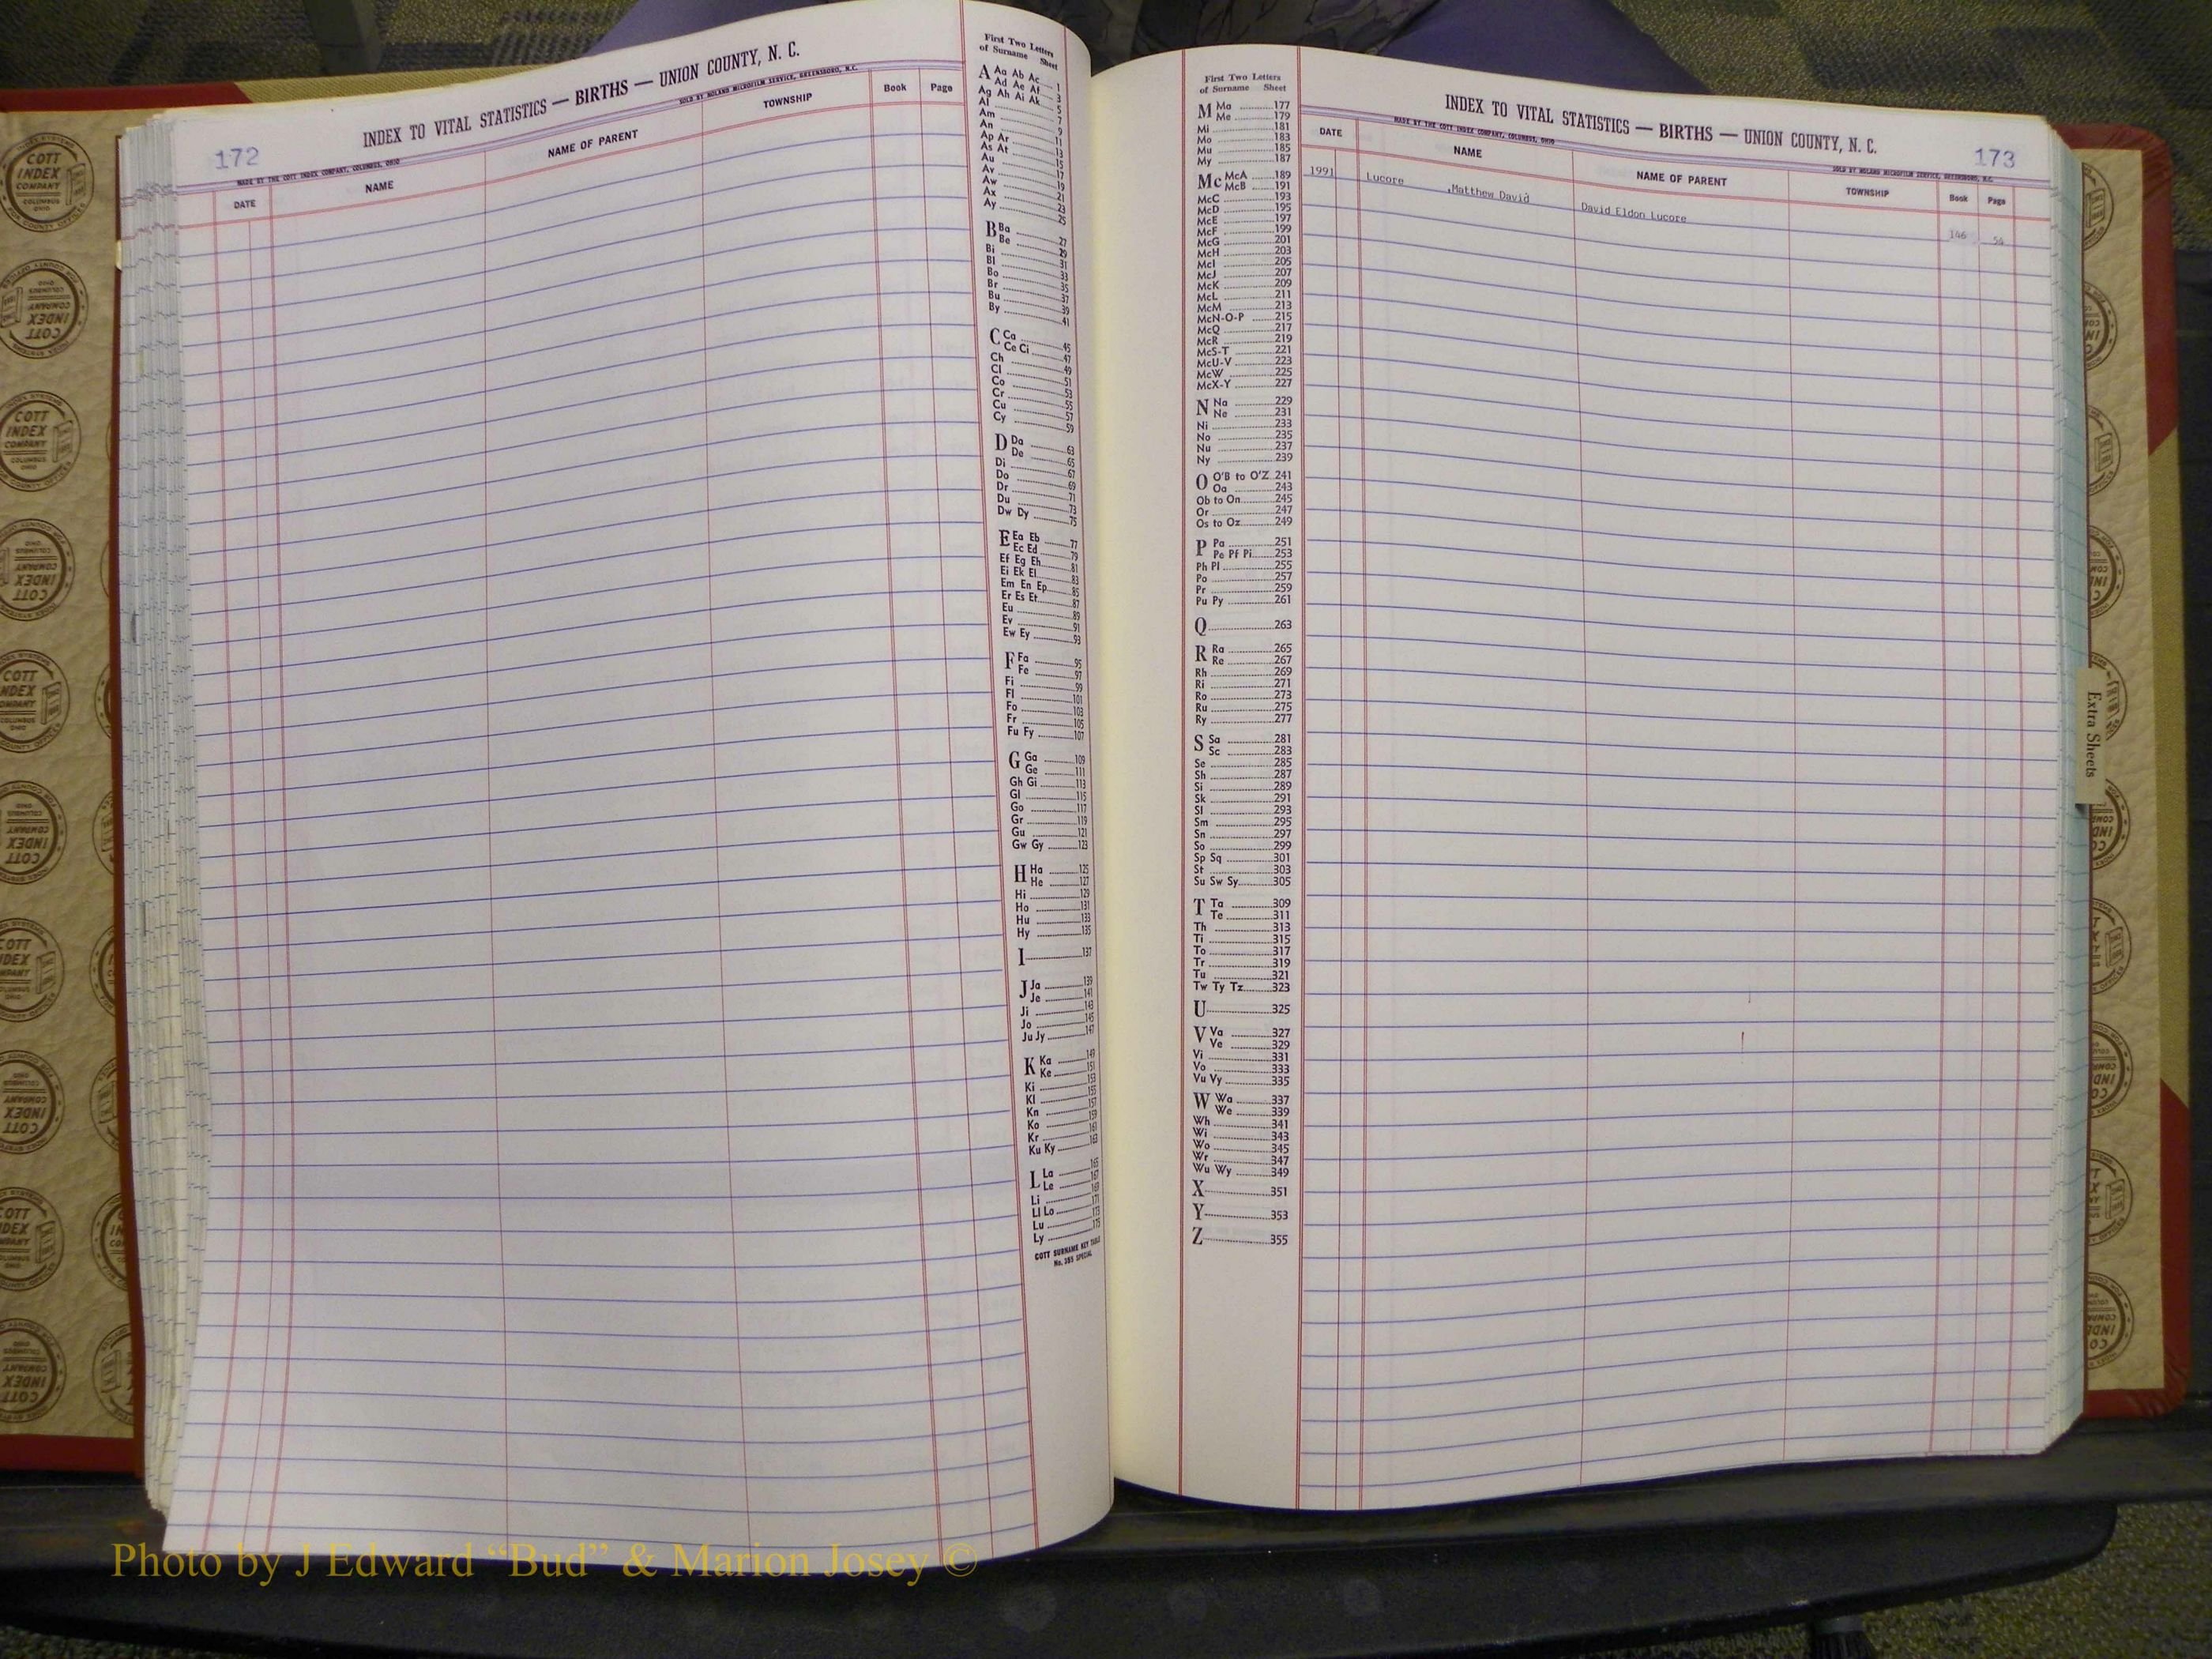 172
INDEX TO VITAL STATISTICS — BIRTHS — UNION COUNTY, N. C.
MADE BY THE COTT INDEX COMPANY, COLUMBUS, OHIO
SOLD BY NOLAND MICROFILM SERVICE, GREENSBORO, N.C.
DATE NAME NAME OF PARENT TOWNSHIP Book Page
First Two Letters
of Surname Sheet
A Aa Ab Ac 1
Ad Ae Af 3
Ag Ah Ai Ak 5
Al 7
Am 9
An 11
Ap Ar 13
As At 15
Au 17
Av 19
Aw 21
Ax 23
Ay 25
B Ba 27
Be 29
Bi 31
Bl 33
Bo 35
Br 37
Bu 39
By 41
C Ca 45
Ce Ci 47
Ch 49
Cl 51
Co 53
Cr 55
Cu 57
Cy 59
D Da 63
De 65
Di 67
Do 69
Dr 71
Du 73
Dw Dy 75
E Ea Eb 77
Ec Ed 79
Ef Eg Eh 81
Ei Ek El 83
Em En Ep 85
Er Es Et 87
Eu 89
Ev 91
Ew Ey 93
F Fa 95
Fe 97
Fi 99
Fl 101
Fo 103
Fr 105
Fu Fy 107
G Ga 109
Ge 111
Gh Gi 113
Gl 115
Go 117
Gr 119
Gu 121
Gw Gy 123
H Ha 125
He 127
Hi 129
Ho 131
Hu 133
Hy 135
I 137
J Ja 139
Je 141
Ji 143
Jo 145
Ju Jy 147
K Ka 149
Ke 151
Ki 153
Kl 155
Kn 157
Ko 159
Kr 161
Ku Ky 163
L La 165
Le 167
Li 169
Ll Lo 171
Lu 173
Ly 175
COTT SURNAME KEY TABLE
No. 385 SPECIAL
First Two Letters
of Surname Sheet
M Ma 177
Me 179
Mi 181
Mo 183
Mu 185
My 187
Mc McA 189
McB 191
McC 193
McD 195
McE 197
McF 199
McG 201
McH 203
McI 205
McJ 207
McK 209
McL 211
McM 213
McN-O-P 215
McQ 217
McR 219
McS-T 221
McU-V 223
McW 225
McX-Y 227
N Na 229
Ne 231
Ni 233
No 235
Nu 237
Ny 239
O O'B to O'Z 241
Oa 243
Ob to On 245
Or 247
Os to Oz 249
P Pa 251
Pe Pf Pi 253
Ph Pl 255
Po 257
Pr 259
Pu Py 261
Q 263
R Ra 265
Re 267
Rh 269
Ri 271
Ro 273
Ru 275
Ry 277
S Sa 281
Sc 283
Se 285
Sh 287
Si 289
Sk 291
Sl 293
Sm 295
Sn 297
So 299
Sp Sq 301
St 303
Su Sw Sy 305
T Ta 309
Te 311
Th 313
Ti 315
To 317
Tr 319
Tu 321
Tw Ty Tz 323
U 325
V Va 327
Ve 329
Vi 331
Vo 333
Vu Vy 335
W Wa 337
We 339
Wh 341
Wi 343
Wo 345
Wr 347
Wu Wy 349
X 351
Y 353
Z 355
INDEX TO VITAL STATISTICS — BIRTHS — UNION COUNTY, N. C.
173
MADE BY THE COTT INDEX COMPANY, COLUMBUS, OHIO
SOLD BY NOLAND MICROFILM SERVICE, GREENSBORO, N.C.
DATE NAME NAME OF PARENT TOWNSHIP Book Page
1991 Lucore ,Matthew David David Eldon Lucore 146
Extra Sheets
COTT
INDEX
COMPANY
COLUMBUS
OHIO
Photo by J Edward “Bud” & Marion Josey ©